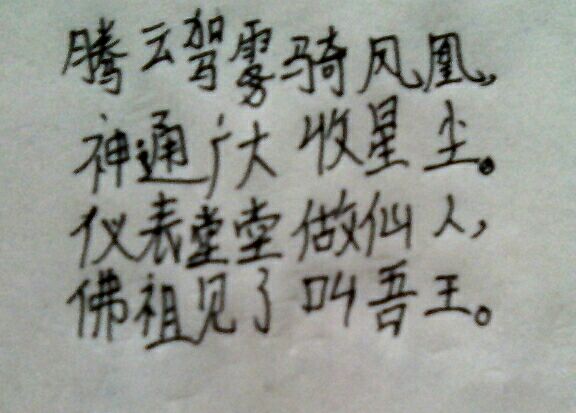 腾云驾雾骑凤凰,
神通广大收星尘。
仪表堂堂做仙人,
佛祖见了叫吾王。